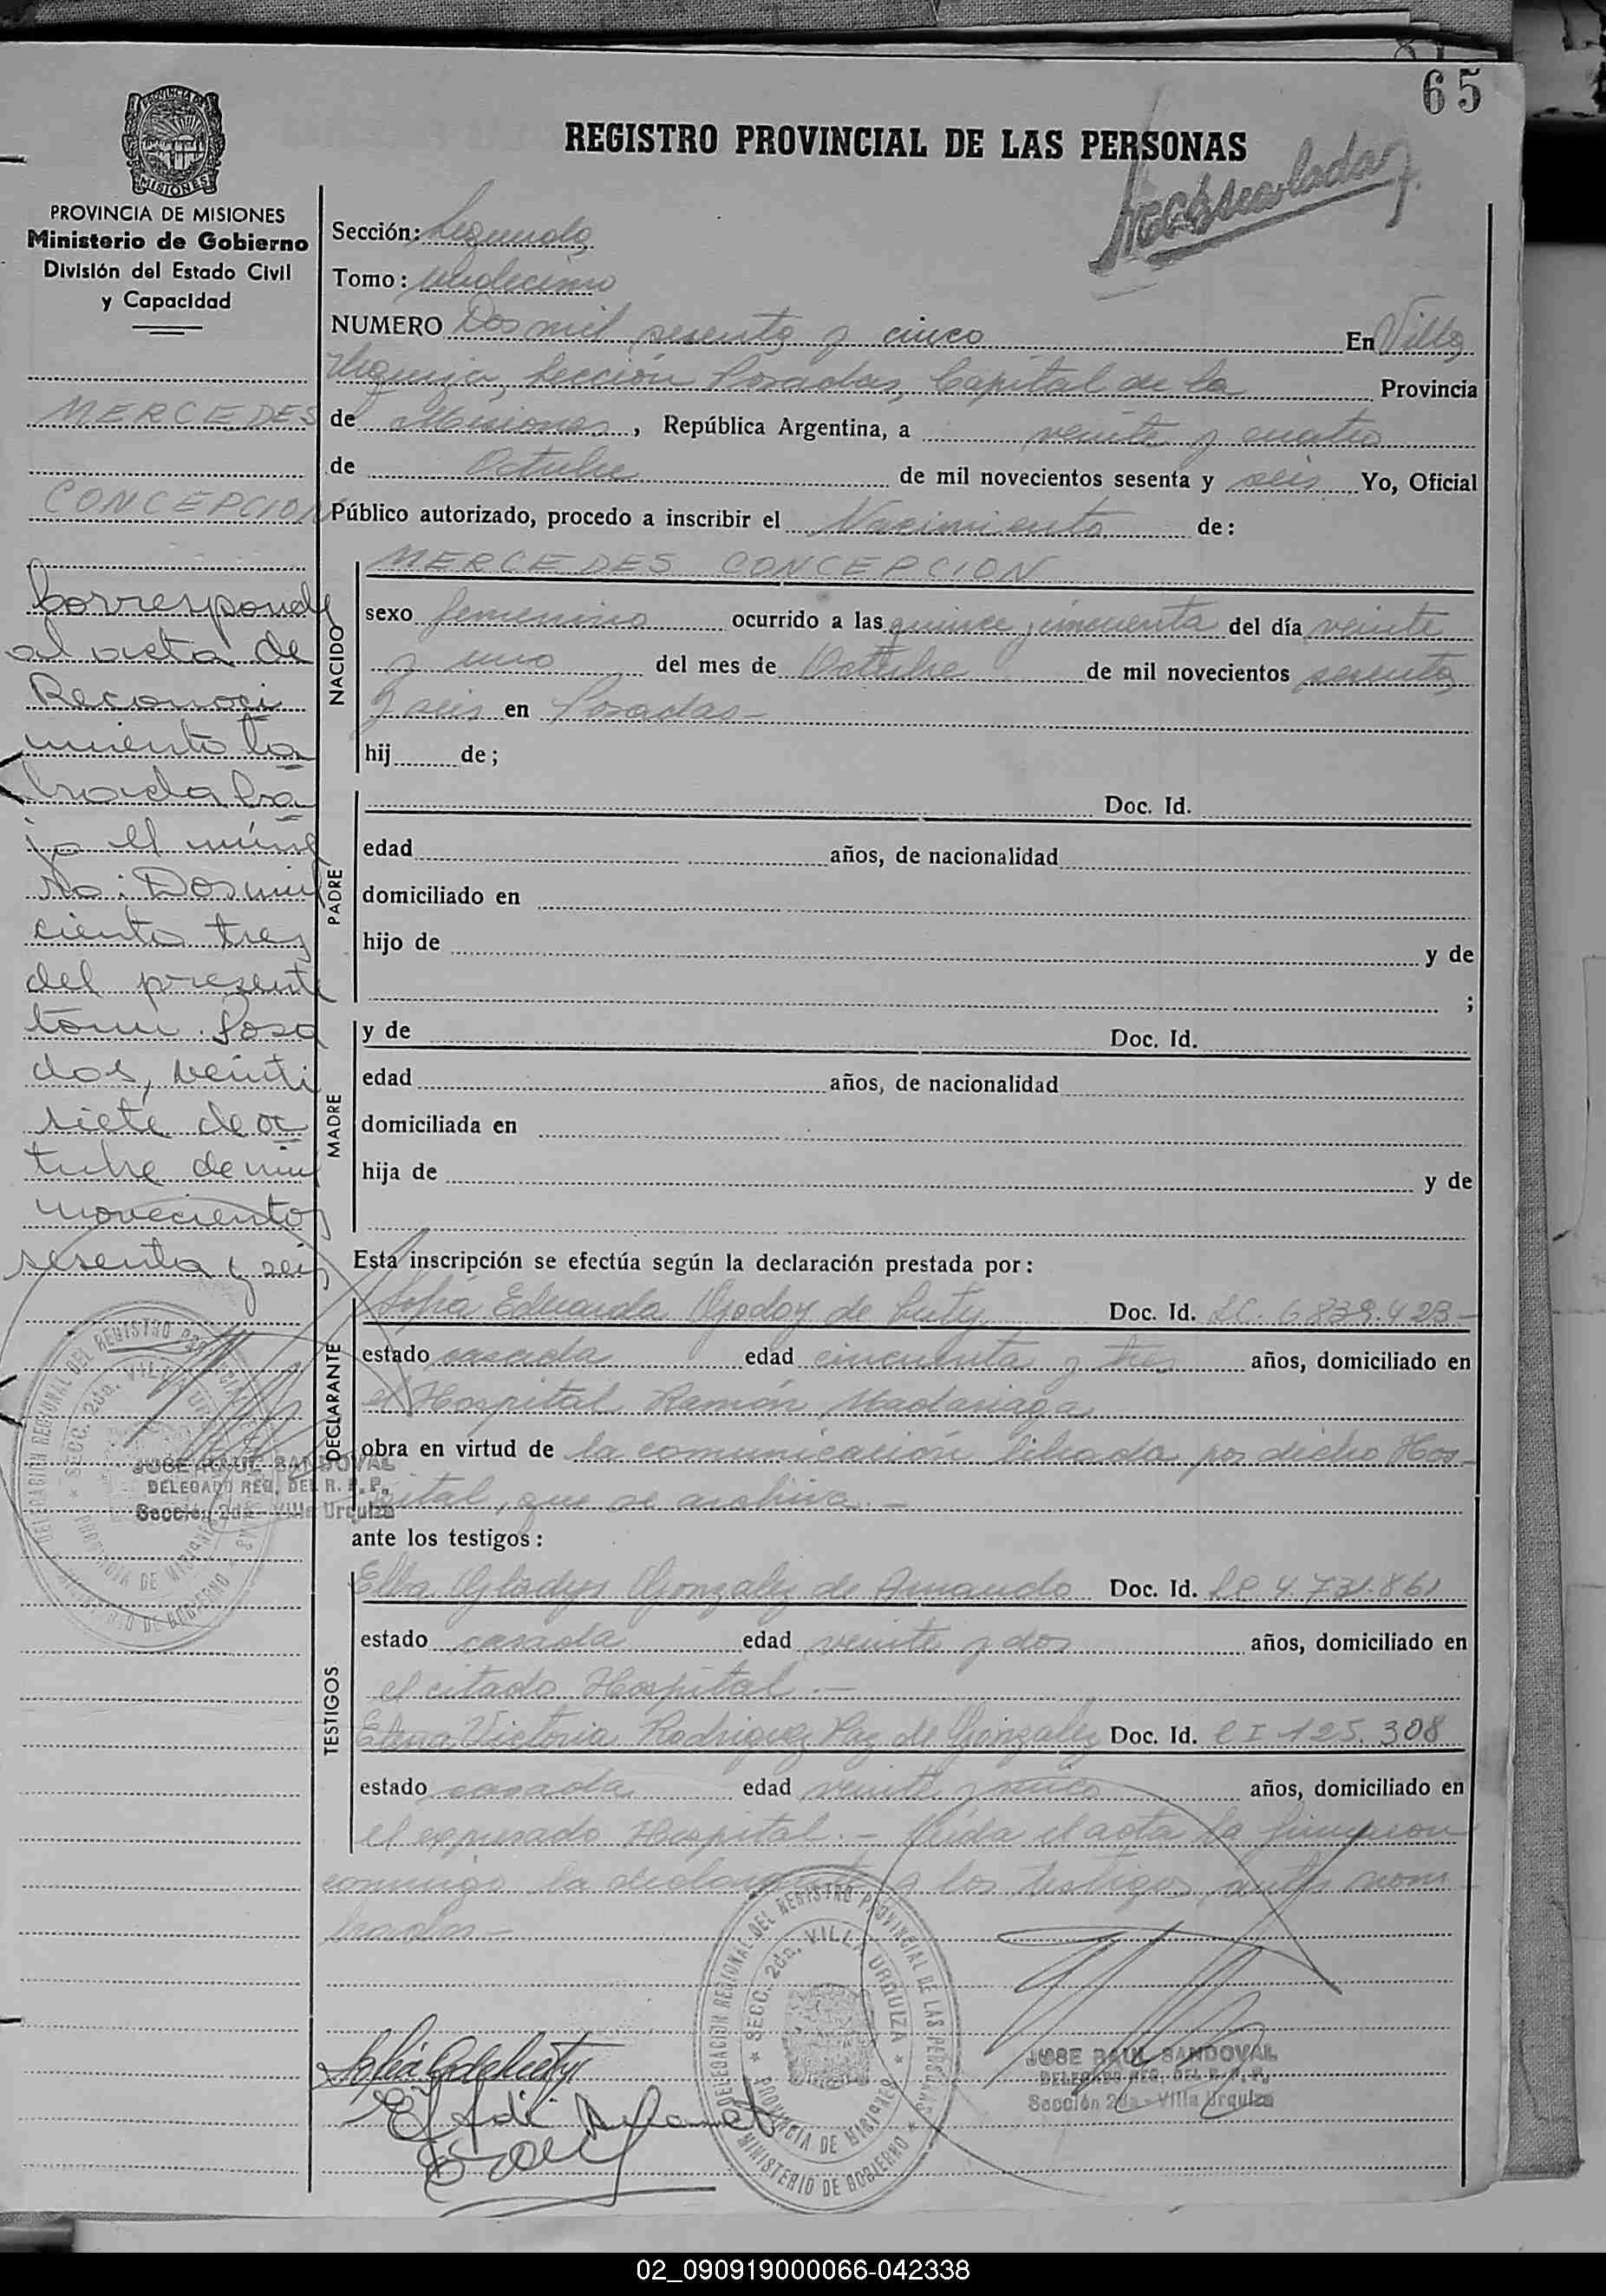 65
REGISTRO PROVINCIAL DE LAS PERSONAS
PROVINCIA DE MISIONES
Ministerio de Gobierno
División del Estado Civil
y Capacidad
MERCEDES
CONCEPCION
Corresponde
al acta de
Reconoci
miento la
brada ba
jo el núme
ro: Dos mil
ciento tres
del presente
tomo. Posa
das, veinti
siete de oc
tubre de mil
novecientos
sesenta y seis
JOSE RAUL SANDOVAL
DELEGADO REG. DEL R. P. P.
Sección 2da - Villa Urquiza
Sección: Segunda
Tomo: Undecimo
NUMERO Dos mil sesenta y cinco En Villa
Urquiza, Sección Posadas, Capital de la Provincia
de Misiones, República Argentina, a veinte y cuatro
de Octubre de mil novecientos sesenta y seis Yo, Oficial
Público autorizado, procedo a inscribir el Nacimiento de:
NACIDO
MERCEDES CONCEPCION
sexo femenino ocurrido a las quince y cincuenta del día veinte
y uno del mes de Octubre de mil novecientos sesenta
y seis en Posadas-
hij de;
PADRE
Doc. Id.
edad años, de nacionalidad
domiciliado en
hijo de y de
;
MADRE
y de Doc. Id.
edad años, de nacionalidad
domiciliada en
hija de y de
Esta inscripción se efectúa según la declaración prestada por:
DECLARANTE
Sofia Eduarda Godoy de Doc. Id. LC. 6839.423-
estado casada edad cincuenta y tres años, domiciliado en
el Hospital Ramón Madariaga
obra en virtud de la comunicación librada por dicho Hos-
pital, que se archiva.-
ante los testigos:
TESTIGOS
Elba Gladys Gonzalez de Doc. Id. LC 4.731.861
estado casada edad veinte y dos años, domiciliado en
el citado Hospital.-
Elena Victoria Rodriguez Paz de Gonzalez Doc. Id. C I 125.308
estado casada edad veinte y cinco años, domiciliado en
el expresado Hospital.- Leida el acta la firmaron
conmigo la declarante y los testigos antes nom-
brados-
DELEGACION REGIONAL DEL REGISTRO PROVINCIAL DE LAS PERSONAS
SECC. 2da. VILLA URQUIZA
PROVINCIA DE MISIONES
MINISTERIO DE GOBIERNO
JOSE RAUL SANDOVAL
DELEGADO REG. DEL R. P. P.
Sección 2da - Villa Urquiza
02_090919000066-042338